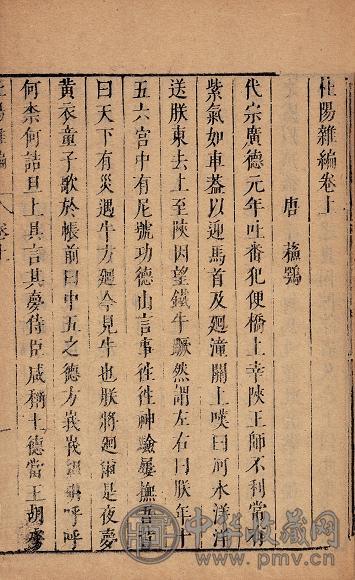 杜陽雜編卷上
唐 蘓鶚
代宗廣德元年吐番犯便橋上幸陜王師不利常有
紫氣如車葢以迎馬首及廻潼關上嘆曰河水洋洋
送朕東去上至陜因望鐵牛蹶然謂左右曰朕年十
五六宮中有尼號功德山言事徃徃神驗屢撫吾背
曰天下有災遇牛方廻今見牛也朕將廻爾是夜夢
黄衣童子歌於帳前曰中五之德方峩峩呼呼
何柰何詰旦上具言其夢侍臣咸稱土德當王胡
中华收藏网
www.pmv.cn